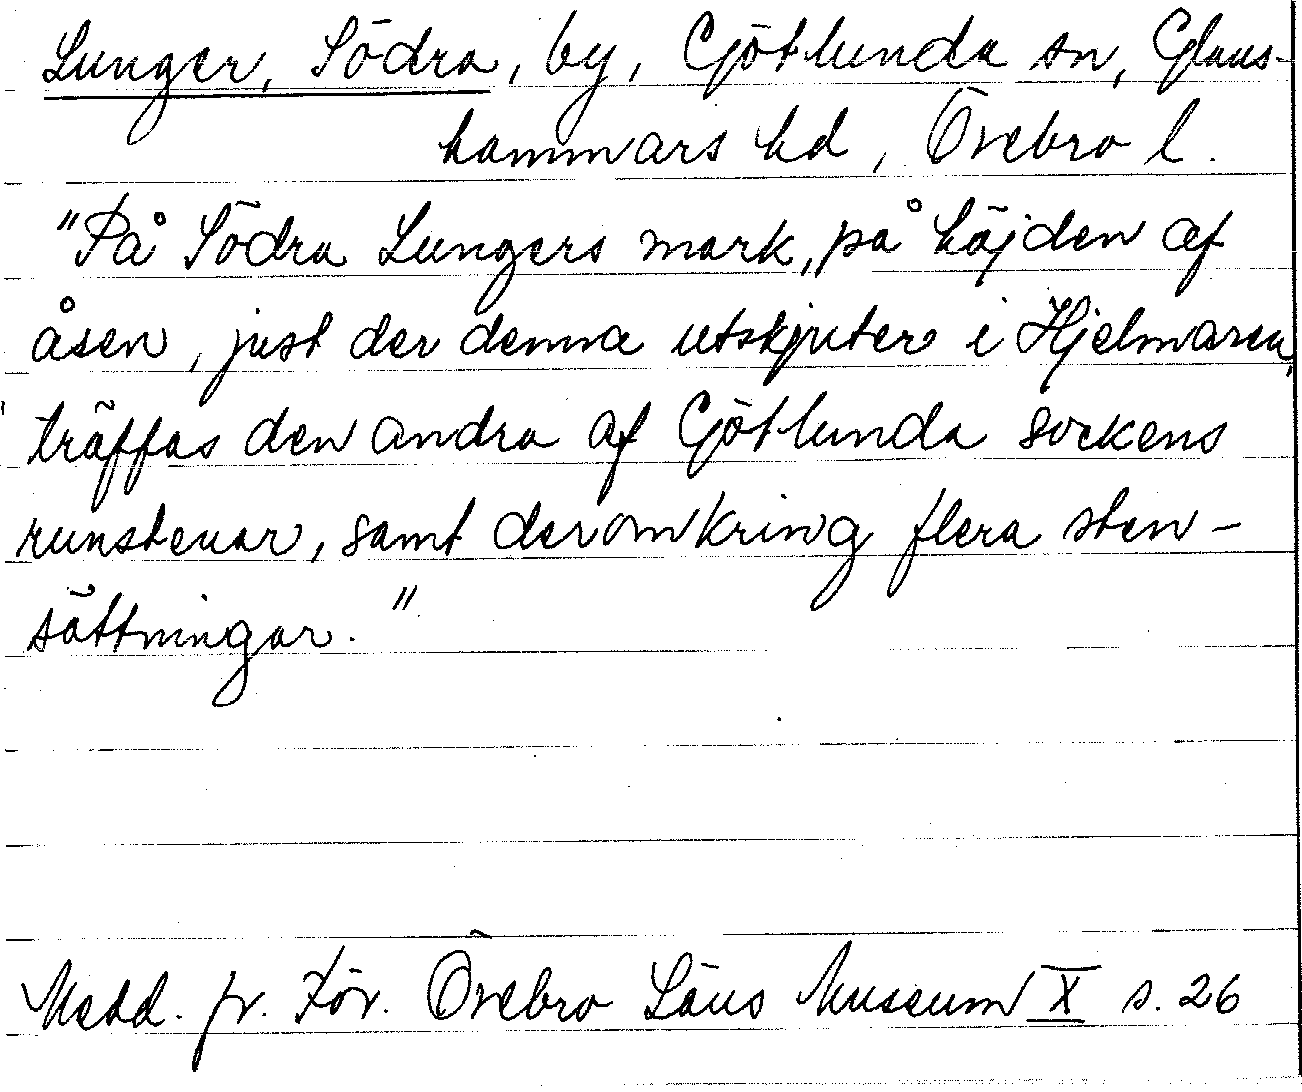 Lunger, Södra, by, Götlunda sn, Glans-
hammars hd, Örebro l.
"På Södra Lungers mark, på höjden af
åsen, just der denna utskjuter i Hjelmaren,
träffas den andra af Götlunda sockens
runstenar, samt deromkring flera sten-
sättningar."
Medd. fr. För. Örebro Läns Museum X s. 26